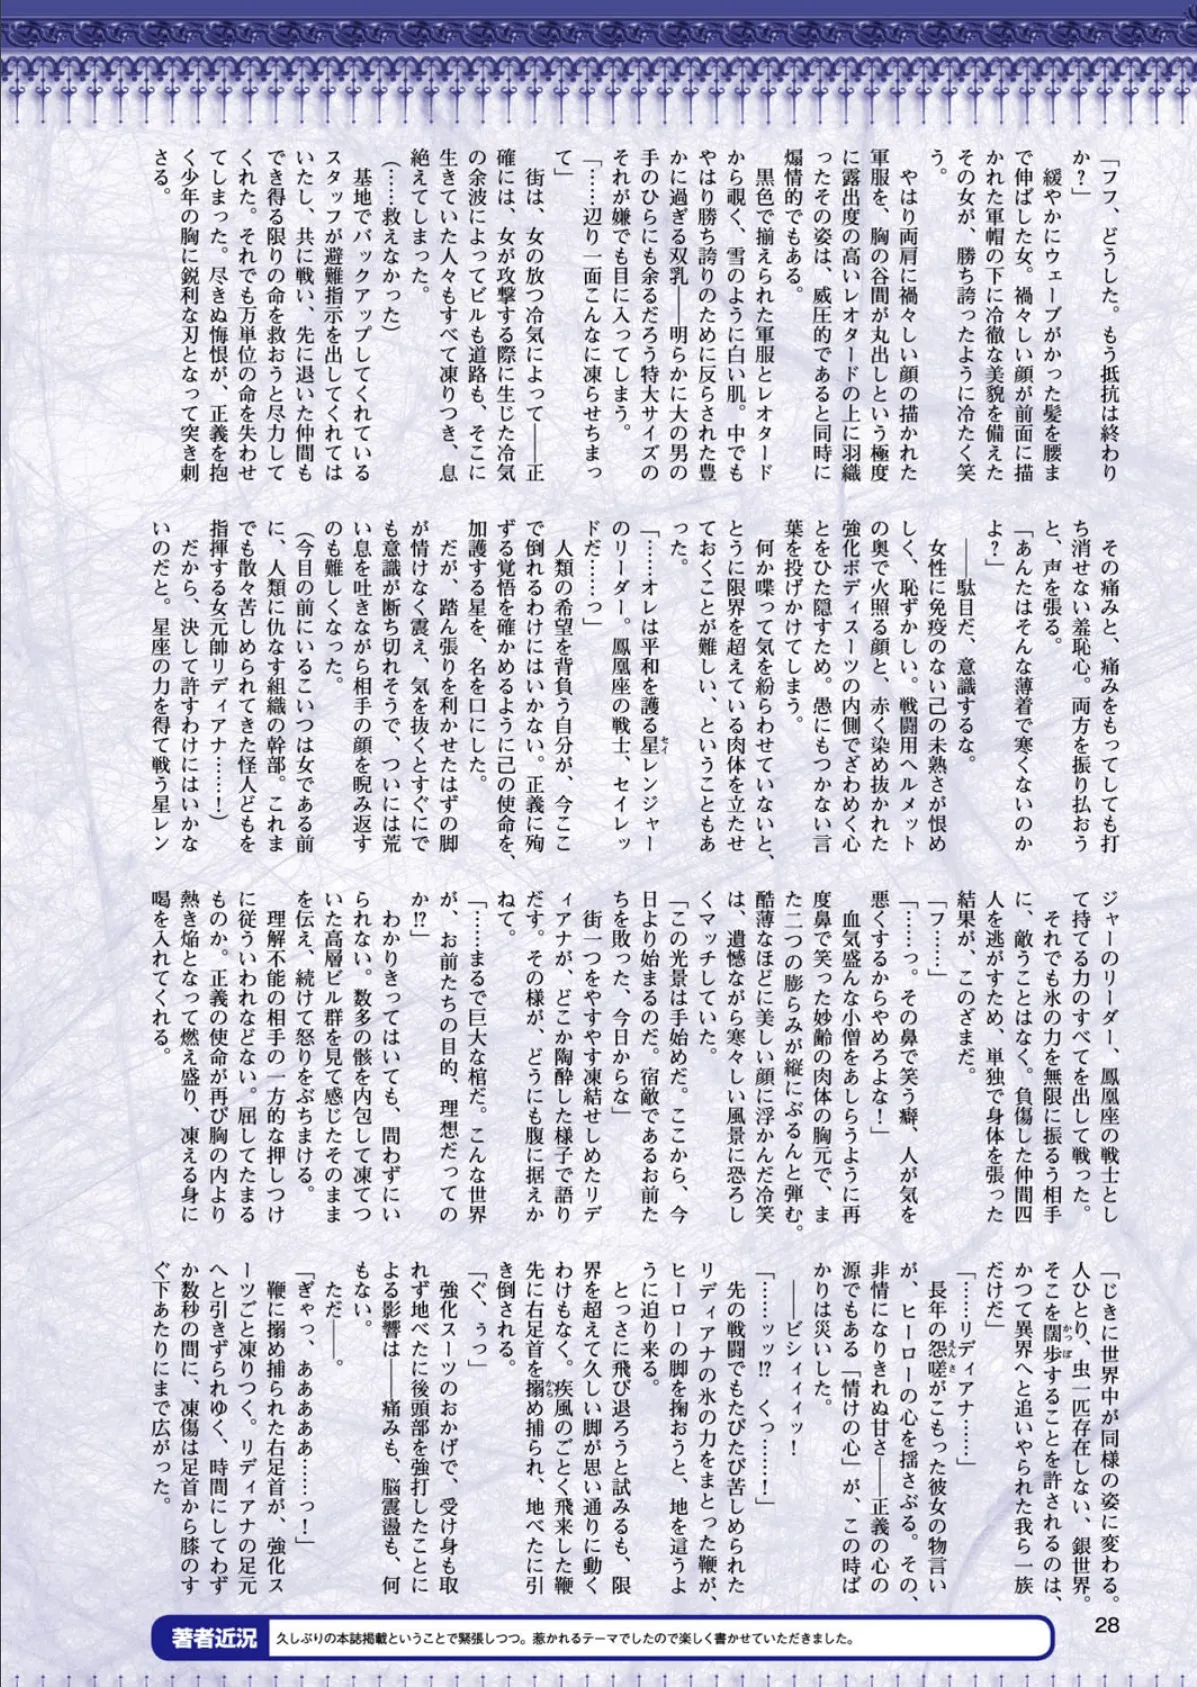 「フフ、どうした。もう抵抗は終わり
か？」
　緩やかにウェーブがかった髪を腰ま
で伸ばした女。禍々しい顔が前面に描
かれた軍帽の下に冷徹な美貌を備えた
その女が、勝ち誇ったように冷たく笑
う。
　やはり両肩に禍々しい顔の描かれた
軍服を、胸の谷間が丸出しという極度
に露出度の高いレオタードの上に羽織
ったその姿は、威圧的であると同時に
煽情的でもある。
　黒色で揃えられた軍服とレオタード
から覗く、雪のように白い肌。中でも
やはり勝ち誇りのために反らされた豊
かに過ぎる双乳――明らかに大の男の
手のひらにも余るだろう特大サイズの
それが嫌でも目に入ってしまう。
「……辺り一面こんなに凍らせちまっ
て」
　街は、女の放つ冷気によって――正
確には、女が攻撃する際に生じた冷気
の余波によってビルも道路も、そこに
生きていた人々もすべて凍りつき、息
絶えてしまった。
（……救えなかった）
　基地でバックアップしてくれている
スタッフが避難指示を出してくれては
いたし、共に戦い、先に退いた仲間も
でき得る限りの命を救おうと尽力して
くれた。それでも万単位の命を失わせ
てしまった。尽きぬ悔恨が、正義を抱
く少年の胸に鋭利な刃となって突き刺
さる。
　その痛みと、痛みをもってしても打
ち消せない羞恥心。両方を振り払おう
と、声を張る。
「あんたはそんな薄着で寒くないのか
よ？」
　――駄目だ、意識するな。
　女性に免疫のない己の未熟さが恨め
しく、恥ずかしい。戦闘用ヘルメット
の奥で火照る顔と、赤く染め抜かれた
強化ボディスーツの内側でざわめく心
とをひた隠すため。愚にもつかない言
葉を投げかけてしまう。
　何か喋って気を紛らわせていないと、
とうに限界を超えている肉体を立たせ
ておくことが難しい、ということもあ
った。
「……オレは平和を護る星セイレンジャー
のリーダー。鳳凰座の戦士、セイレッ
ドだ……っ」
　人類の希望を背負う自分が、今ここ
で倒れるわけにはいかない。正義に殉
ずる覚悟を確かめるように己の使命を、
加護する星を、名を口にした。
　だが、踏ん張りを利かせたはずの脚
が情けなく震え、気を抜くとすぐにで
も意識が断ち切れそうで、ついには荒
い息を吐きながら相手の顔を睨み返す
のも難しくなった。
（今目の前にいるこいつは女である前
に、人類に仇なす組織の幹部。これま
でも散々苦しめられてきた怪人どもを
指揮する女元帥リディアナ……！）
　だから、決して許すわけにはいかな
いのだと。星座の力を得て戦う星レン
ジャーのリーダー、鳳凰座の戦士とし
て持てる力のすべてを出して戦った。
　それでも氷の力を無限に振るう相手
に、敵うことはなく。負傷した仲間四
人を逃がすため、単独で身体を張った
結果が、このざまだ。
「フ……」
「……っ。その鼻で笑う癖、人が気を
悪くするからやめろよな！」
　血気盛んな小僧をあしらうように再
度鼻で笑った妙齢の肉体の胸元で、ま
た二つの膨らみが縦にぶるんと弾む。
酷薄なほどに美しい顔に浮かんだ冷笑
は、遺憾ながら寒々しい風景に恐ろし
くマッチしていた。
「この光景は手始めだ。ここから、今
日より始まるのだ。宿敵であるお前た
ちを敗った、今日からな」
　街一つをやすやす凍結せしめたリデ
ィアナが、どこか陶酔した様子で語り
だす。その様が、どうにも腹に据えか
ねて。
「……まるで巨大な棺だ。こんな世界
が、お前たちの目的、理想だっての
か!?」
　わかりきってはいても、問わずにい
られない。数多の骸を内包して凍てつ
いた高層ビル群を見て感じたそのまま
を伝え、続けて怒りをぶちまける。
　理解不能の相手の一方的な押しつけ
に従ういわれなどない。屈してたまる
ものか。正義の使命が再び胸の内より
熱き焔となって燃え盛り、凍える身に
喝を入れてくれる。
「じきに世界中が同様の姿に変わる。
人ひとり、虫一匹存在しない、銀世界。
そこを闊歩かっぽすることを許されるのは、
かつて異界へと追いやられた我ら一族
だけだ」
「……リディアナ……」
　長年の怨嗟えんさがこもった彼女の物言い
が、ヒーローの心を揺さぶる。その、
非情になりきれぬ甘さ――正義の心の
源でもある「情けの心」が、この時ば
かりは災いした。
　――ビシィィィッ！
「……ッッ!?　くっ……！」
　先の戦闘でもたびたび苦しめられた
リディアナの氷の力をまとった鞭が、
ヒーローの脚を掬おうと、地を這うよ
うに迫り来る。
　とっさに飛び退ろうと試みるも、限
界を超えて久しい脚が思い通りに動く
わけもなく。疾風のごとく飛来した鞭
先に右足首を搦からめ捕られ、地べたに引
き倒される。
「ぐ、ぅっ」
　強化スーツのおかげで、受け身も取
れず地べたに後頭部を強打したことに
よる影響は――痛みも、脳震盪も、何
もない。
　ただ――。
「ぎゃっ、あああああ……っ！」
　鞭に搦め捕られた右足首が、強化ス
ーツごと凍りつく。リディアナの足元
へと引きずられゆく、時間にしてわず
か数秒の間に、凍傷は足首から膝のす
ぐ下あたりにまで広がった。
28
著者近況
久しぶりの本誌掲載ということで緊張しつつ。惹かれるテーマでしたので楽しく書かせていただきました。